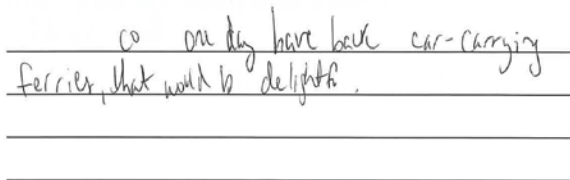 co one day have back car-carrying
ferries, that would b delightf.